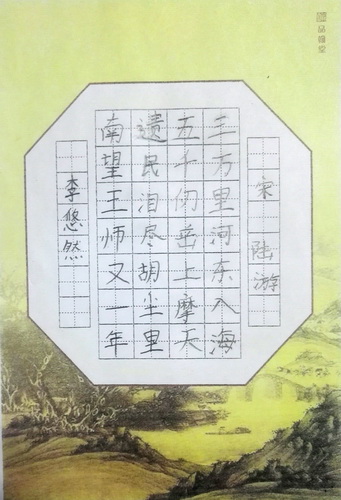 宋 陆游
三万里河东入海
五千仞岳上摩天
遗民泪尽胡尘里
南望王师又一年
李悠然